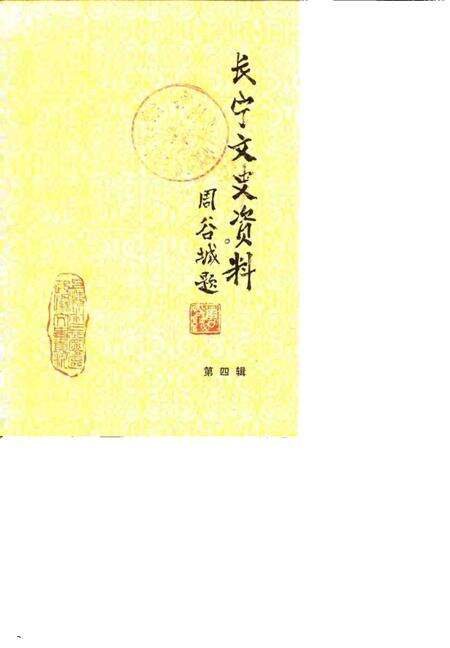 长宁文史资料
周谷城题
第四辑